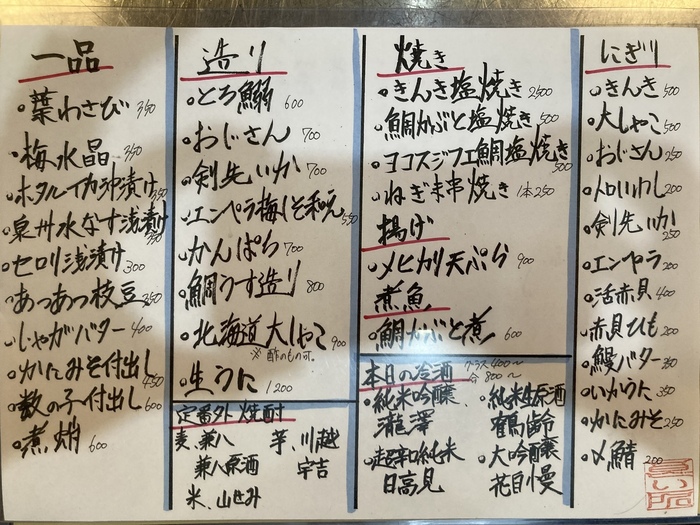 一品
・葉わさび 350
・梅水晶 350
・ホタルイカ沖漬け 350
・泉州水なす浅漬け 350
・セロリ浅漬け 300
・あつあつ枝豆 350
・じゃがバター 400
・かにみそ付出し 450
・数の子付出し 600
・煮蛸 600
造り
・とろ鰯 600
・おじさん 700
・剣先いか 700
・エンペラ梅しそ和え 550
・かんぱち 700
・鯛うす造り 800
・北海道大しゃこ 900
※酢のもの可。
・生うに 1200
定番外 焼酎
麦、兼八
兼八原酒
米、山せみ
芋、川越
宇吉
焼き
・きんき塩焼き 2500
・鯛かぶと塩焼き 500
・ヨコスジフエ鯛塩焼き 500
・ねぎま串焼き 1本250
揚げ
・メヒカリ天ぷら 900
煮魚
・鯛かぶと煮 600
本日の冷酒 グラス400〜
合800〜
・純米吟醸
瀧澤
・超辛口純米
日高見
・純米生原酒
鶴齢
・大吟醸
花自慢
にぎり
・きんき 500
・大しゃこ 500
・おじさん 250
・トロいわし 200
・剣先いか 250
・エンペラ 200
・活赤貝 400
・赤貝ひも 200
・鰻バター 350
・いかうに 350
・かにみそ 250
・〆鯖 200